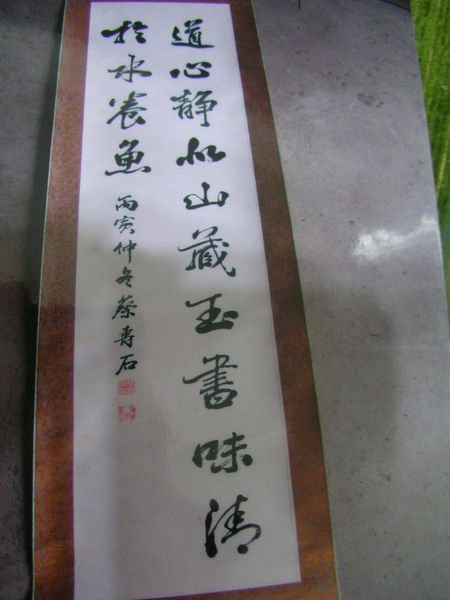 道心静似山藏玉書味清
於水養魚
丙寅仲冬蔡壽石